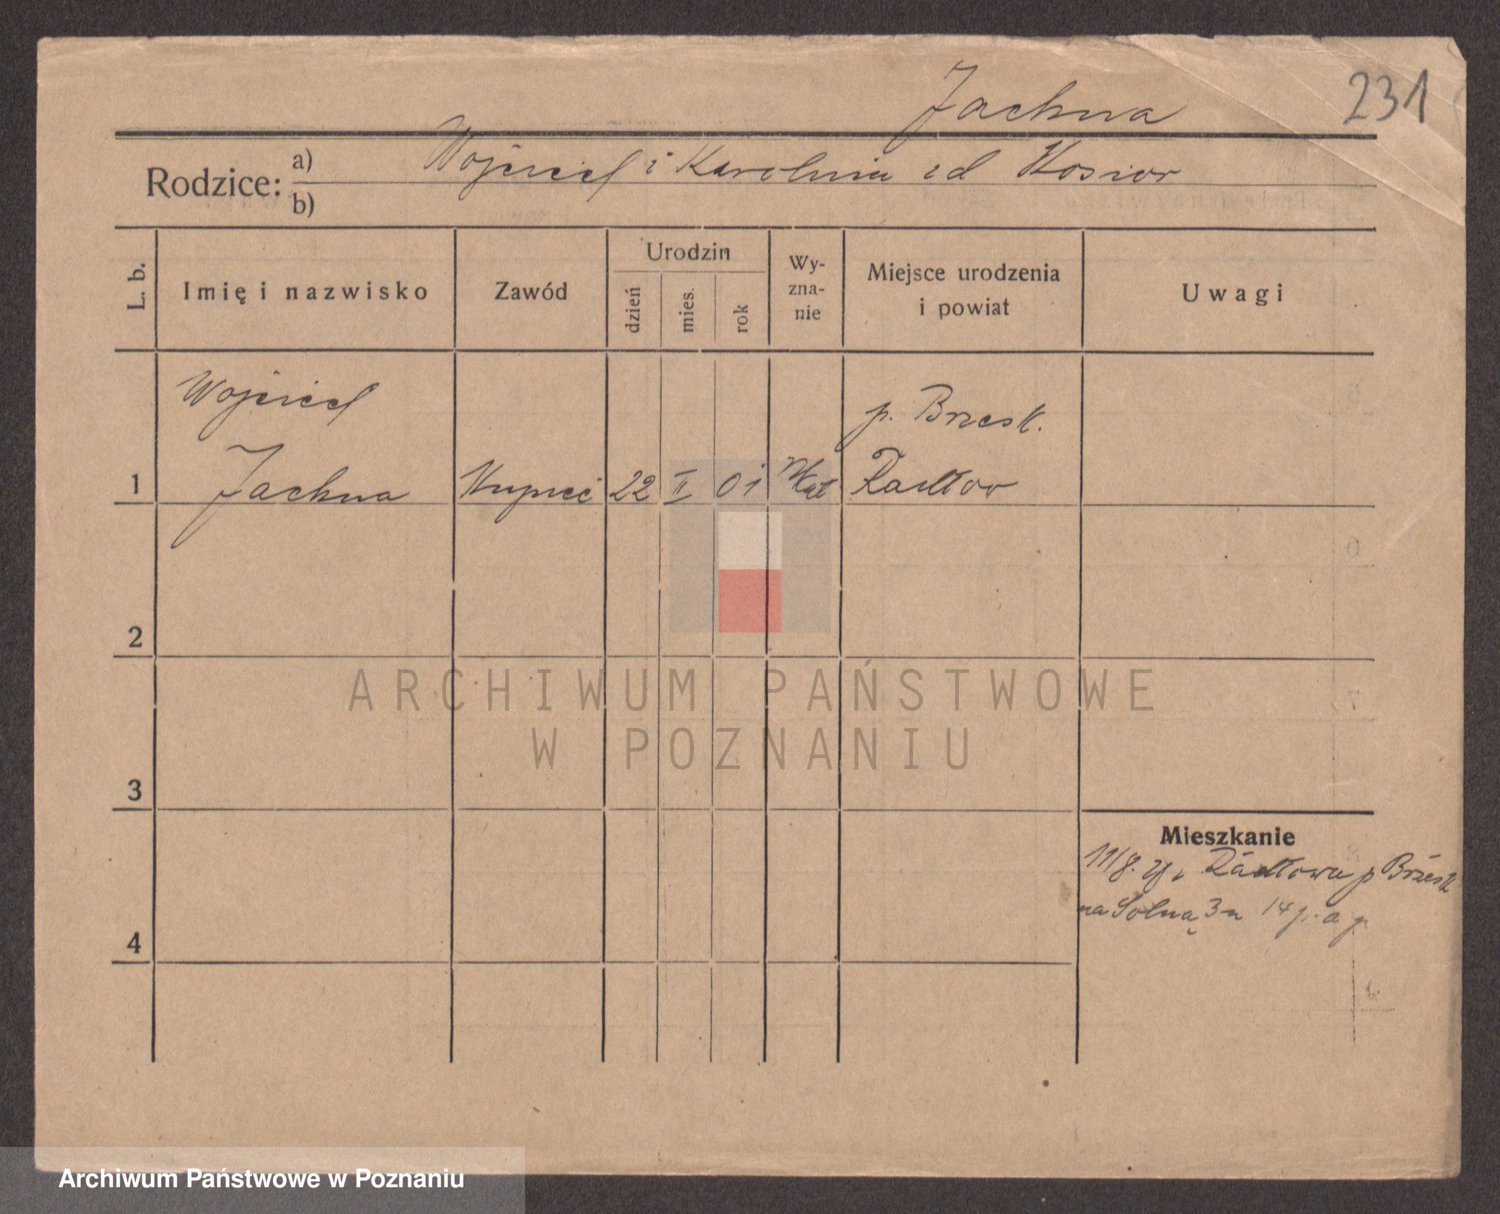 Jachna
231
Rodzice: a) Wojciech i Karolina zd Kosior
b)
L. b.
Imię i nazwisko
Zawód
Urodzin
dzień
mies.
rok
Wy-
zna-
nie
Miejsce urodzenia
i powiat
Uwagi
Wojciech
p. Brzesk.
1 Jachna Kupiec 22 II 01 Radłow
2
3
4
Mieszkanie
11/8. Radłowa p Brzesk
na Solną 3 14
ARCHIWUM PAŃSTWOWE
W POZNANIU
Archiwum Państwowe w Poznaniu